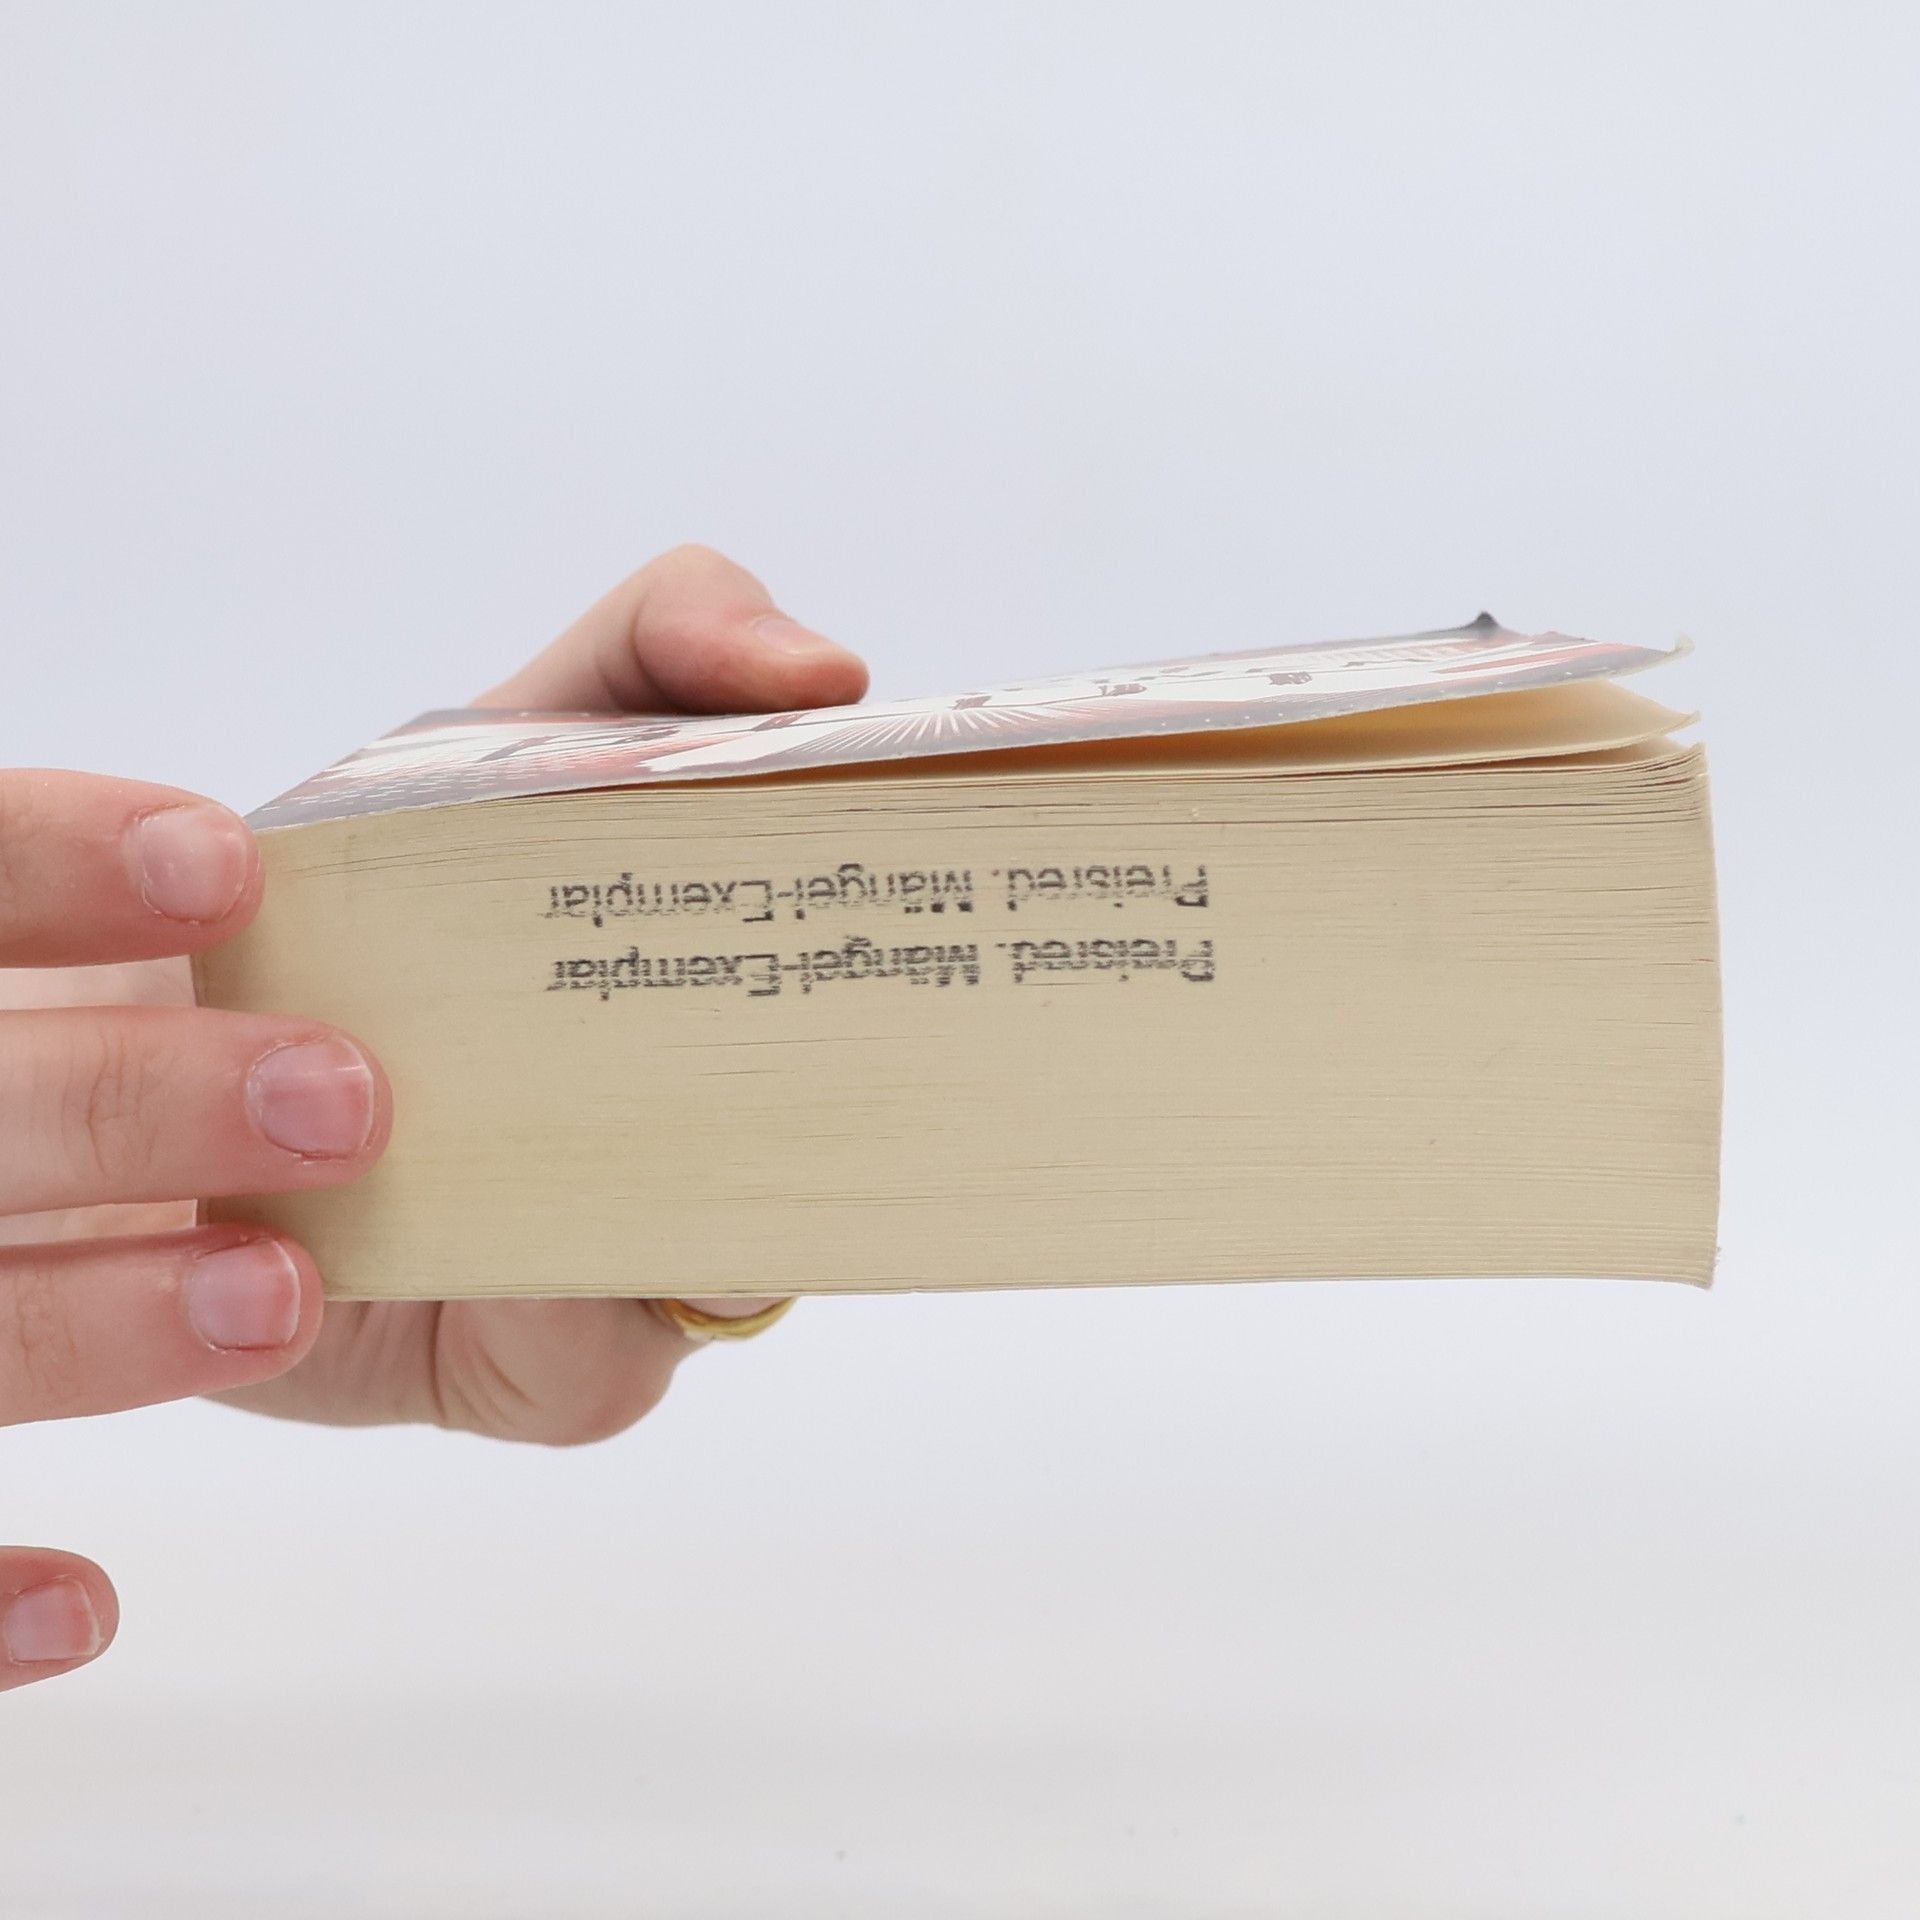 Preisred. Mängel-Exemplar
Preisred. Mängel-Exemplar